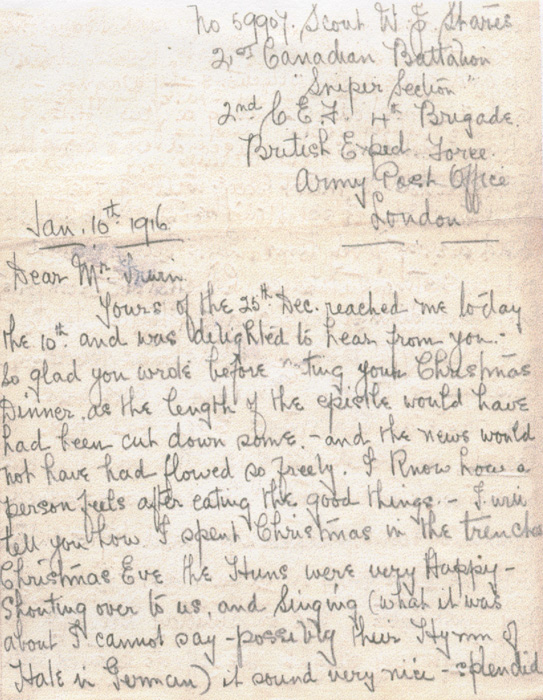 No 59907. Scout W J Shares
21st Canadian Battalion
"Sniper Section"
2nd C E F. 4th Brigade.
British Exped. Force.
Army Post Office
London
Jan. 10th 1916.
Dear Mr. Irwin
Yours of the 25th Dec. reached me to-day
the 10th. and was delighted to hear from you.-
So glad you wrote before eating your Christmas
Dinner, as the length of the epistle would have
had been cut down some. - and the news would
not have had flowed so freely. I Know how a
person feels after eating the good things. - I will
tell you how I spent Christmas in the trenches
Christmas Eve the Huns were very Happy -
Shouting over to us, and Singing (what it was
about I cannot say - possibly their Hymn of
Hate in German) it sound very nice - splendid